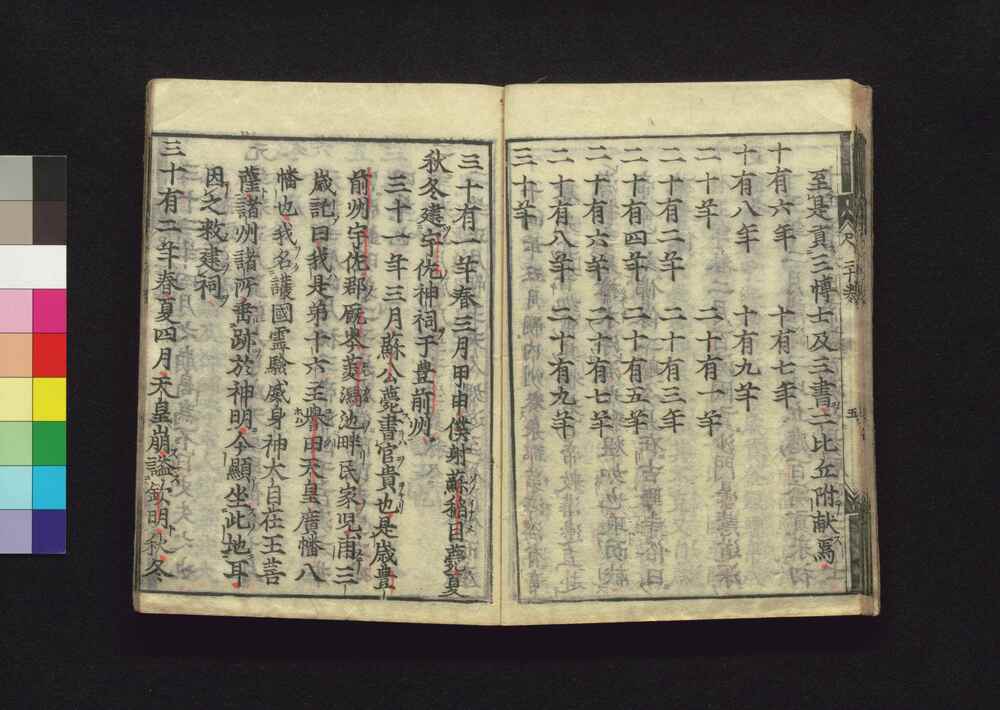 至是貢三博士及三書二比丘附献焉
十有六年　十有七年
十有八年　十有九年
二十年　二十有一年
二十有二年　二十有三年
二十有四年　二十有五年
二十有六年　二十有七年
二十有八年　二十有九年
三十年
三十有一年春三月甲申僕射蘇稲目薨夏
秋冬建宇佐神祠于豊前州
三十一年三月蘇公薨書官貴也是歳豊
前州宇佐郡厩峯菱潟池畔民家児甫三
歳託曰我是第十六主誉田天皇廣幡八
幡也我名護國霊驗威身神大自在王菩
薩諸州諸所垂跡於神明今顯坐此地耳
因之敕建祠
三十有二年春夏四月天皇崩謚欽明秋冬
五